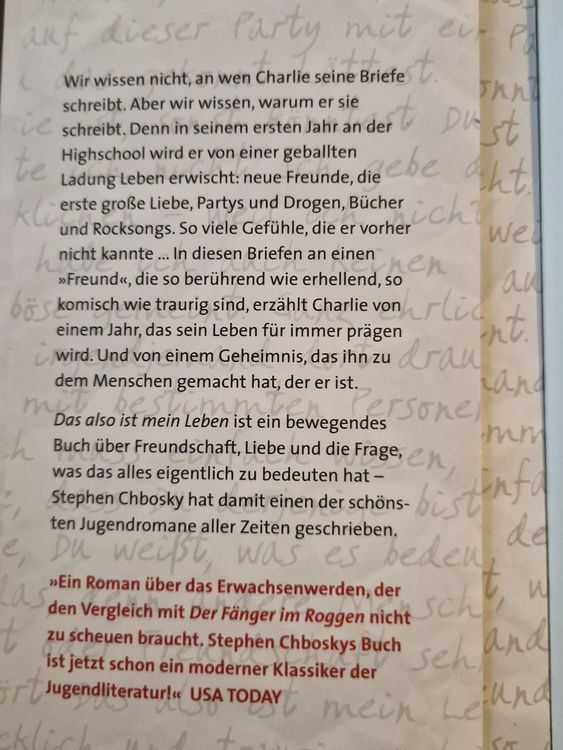 auf dieser Party mit
Wir wissen nicht, an wen Charlie seine Briefe
schreibt. Aber wir wissen, warum er sie
schreibt. Denn in seinem ersten Jahr an der
Highschool wird er von einer geballten
Ladung Leben erwischt: neue Freunde, die
erste große Liebe, Partys und Drogen, Bücher
und Rocksongs. So viele Gefühle, die er vorher
nicht kannte ... In diesen Briefen an einen
»Freund«, die so berührend wie erhellend, so
komisch wie traurig sind, erzählt Charlie von
einem Jahr, das sein Leben für immer prägen
wird. Und von einem Geheimnis, das ihn zu
dem Menschen gemacht hat, der er ist.
mit bestimmten
Das also ist mein Leben ist ein bewegendes
Buch über Freundschaft, Liebe und die Frage,
was das alles eigentlich zu bedeuten hat –
Stephen Chbosky hat damit einen der schöns-
ten Jugendromane aller Zeiten geschrieben.
Du weißt, was es
»Ein Roman über das Erwachsenwerden, der
den Vergleich mit Der Fänger im Roggen nicht
zu scheuen braucht. Stephen Chboskys Buch
ist jetzt schon ein moderner Klassiker der
Jugendliteratur!« USA TODAY